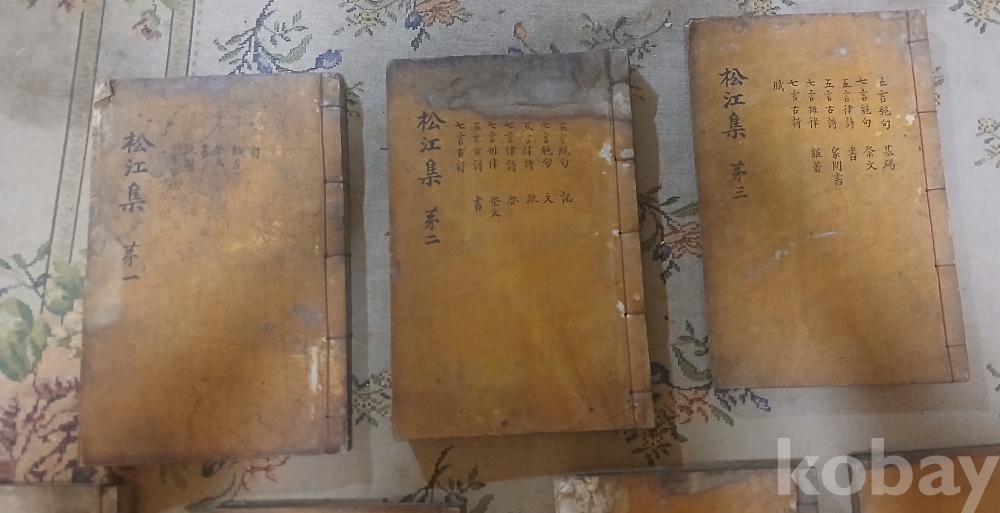 松江集 苐一
祭文
松江集 苐二
五言絶句 記
七言絶句 文
五言律詩 疏
七言律詩
七言排律 祭文
五言古詩 書
七言古詩
松江集 苐三
五言絶句 墓碣
七言絶句 祭文
五言律詩 書
五言古詩 家間書
七言排律 雜著
七言古詩
賦
kobay